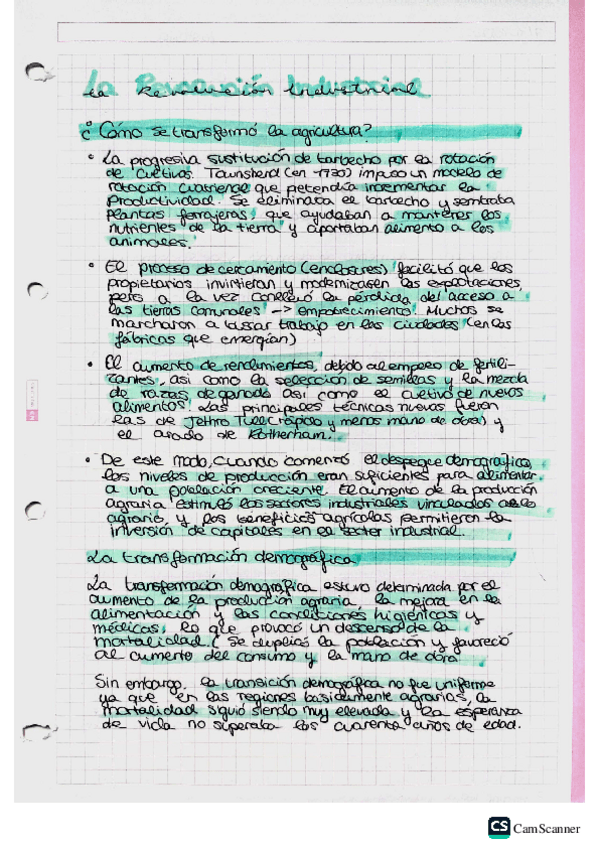 La Revolución Industrial
¿Cómo se transformó la agricultura?
• La progresiva sustitución de barbecho por la rotación
de cultivos. Townshend (en 1730) impuso un modelo de
rotación cuatrienal que petendía incrementar la
Productividad. Se eliminaba el barbecho y sembraba
Plantas forrajeras, que ayudaban a mantener los
nutrientes de la tierra y aportaban alimento a los
animales.
• El proceso de cercamiento (enclosures) facilitó que los
propietarios invirtieran y modernizasen las explotaciones,
pero a la vez conllevó la pérdida del acceso a
las tierras comunales -> empobrecimiento. Muchos se
marcharon a buscar trabajo en las ciudades (en las
fábricas que emergían)
• El aumento de rendimientos, debido al empleo de fertili-
zantes, así como la selección de semillas y la mezcla
de razas de ganado así como el cultivo de nuevos
alimentos. Las principales técnicas nuevas fueron
las de Jethro Tull (rápido y menos mano de obra) y
el arado de Rotherham.
• De este modo, cuando comenzó el despegue demográfico,
los niveles de producción eran suficientes para alimentar
a una población creciente. El aumento de la producción
agraria estimuló los sectores industriales vinculados a lo
agrario, y los beneficios agrícolas permitieron la
inversión de capitales en el sector industrial.
La transformación demográfica
La transformación demográfica estuvo determinada por el
aumento de la producción agraria, la mejora en la
alimentación y las condiciones higiénicas y
médicas, lo que provocó un descenso de la
mortalidad. (Se duplicó la población y favoreció
al aumento del consumo y la mano de obra
Sin embargo, la transición demográfica no fue uniforme
ya que en las regiones básicamente agrarias, la
mortalidad siguió siendo muy elevada y la esperanza
de vida no superaba los cuarenta años de edad.
CS CamScanner